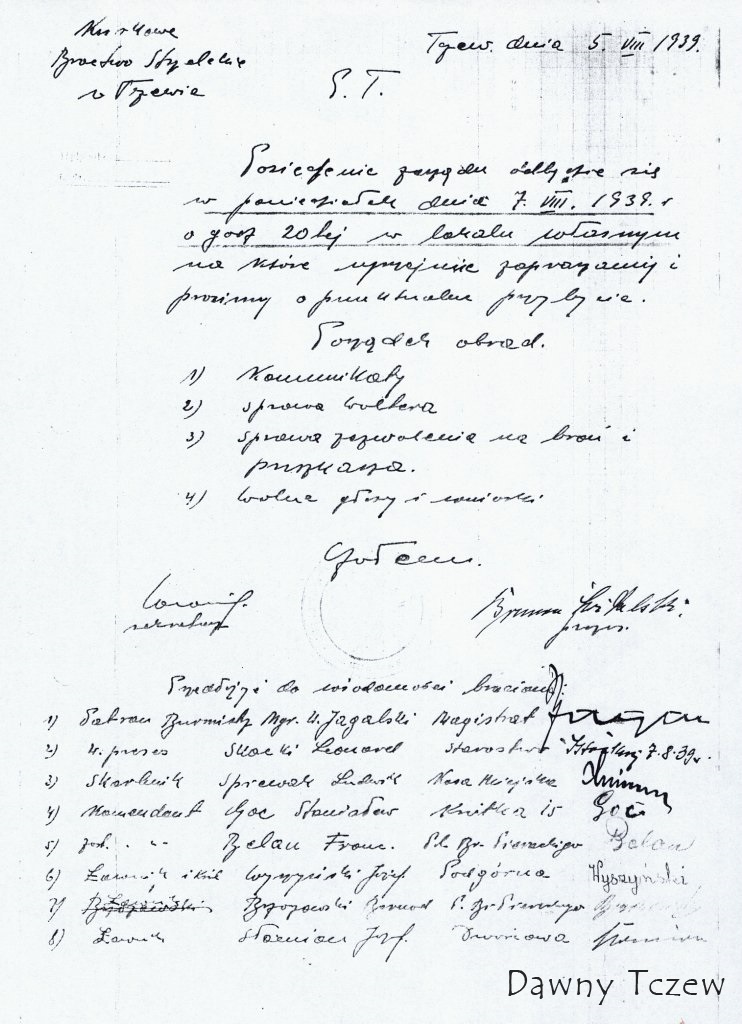 Kurkowe
Bractwo Strzeleckie
w Tczewie
Tczew. dnia 5. VIII 1939.
P. T.
Posiedzenie zarządu odbędzie się
w poniedziałek dnia 7. VIII. 1939. r
o godz 20tej w lokalu własnym
na które uprzejmie zapraszamy i
prosimy o punktualne przybycie.
Porządek obrad.
1) Komunikaty
2) sprawa Woltera
3) sprawa zezwolenia na broń i
4) Wolne głosy i wnioski
Czołem.
sekretarz
prezes.
Przedłożyć do wiadomości braciom:
1) Patron Burmistrz Mgr. K. Jagalski Magistrat
2) W. prezes Skocki Leonard Starostwo 7.8.39r.
3) Skarbnik Śpiewak Ludwik Kasa Miejska
4) Komendant Goc Stanisław Krótka 15 Goc
5) zast. " " Belau Franc. Pl. Br. Pierackiego Belau
6) Ławnik Wyszyński Józef Podgórna Wyszyński
7) Brzozowski Bernard P. Br. Pierackiego
8) Ławnik Józef Dworcowa
Dawny Tczew